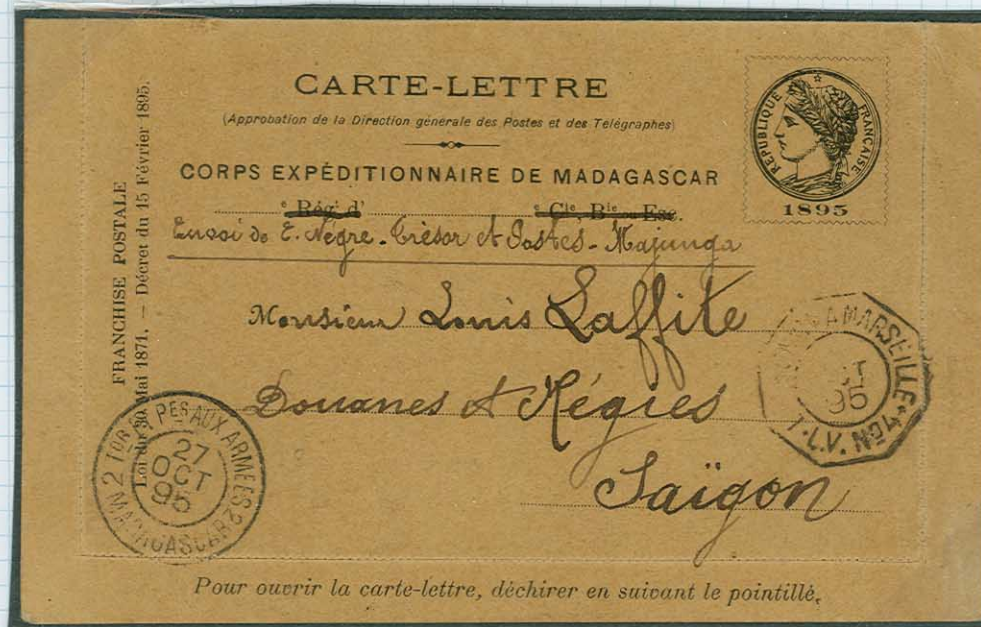 CARTE-LETTRE
(Approbation de la Direction générale des Postes et des Télégraphes)
CORPS EXPÉDITIONNAIRE DE MADAGASCAR
e Régt d' e Cie, Bie ou Esc.
Envoi de E. Nègre - Trésor et Postes - Majunga
Monsieur Louis Laffite
Douanes et Régies
Saïgon
RÉPUBLIQUE FRANÇAISE
1895
FRANCHISE POSTALE
Loi du 30 Mai 1871. — Décret du 15 Février 1895.
2 TOR ET PES AUX ARMEES 2
27
OCT
95
MADAGASCAR
A MARSEILLE
95
L.V. No
Pour ouvrir la carte-lettre, déchirer en suivant le pointillé.